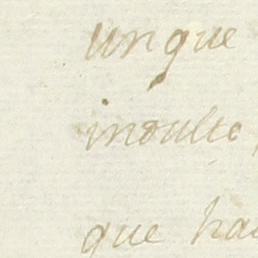 unque
indulto,
que ha